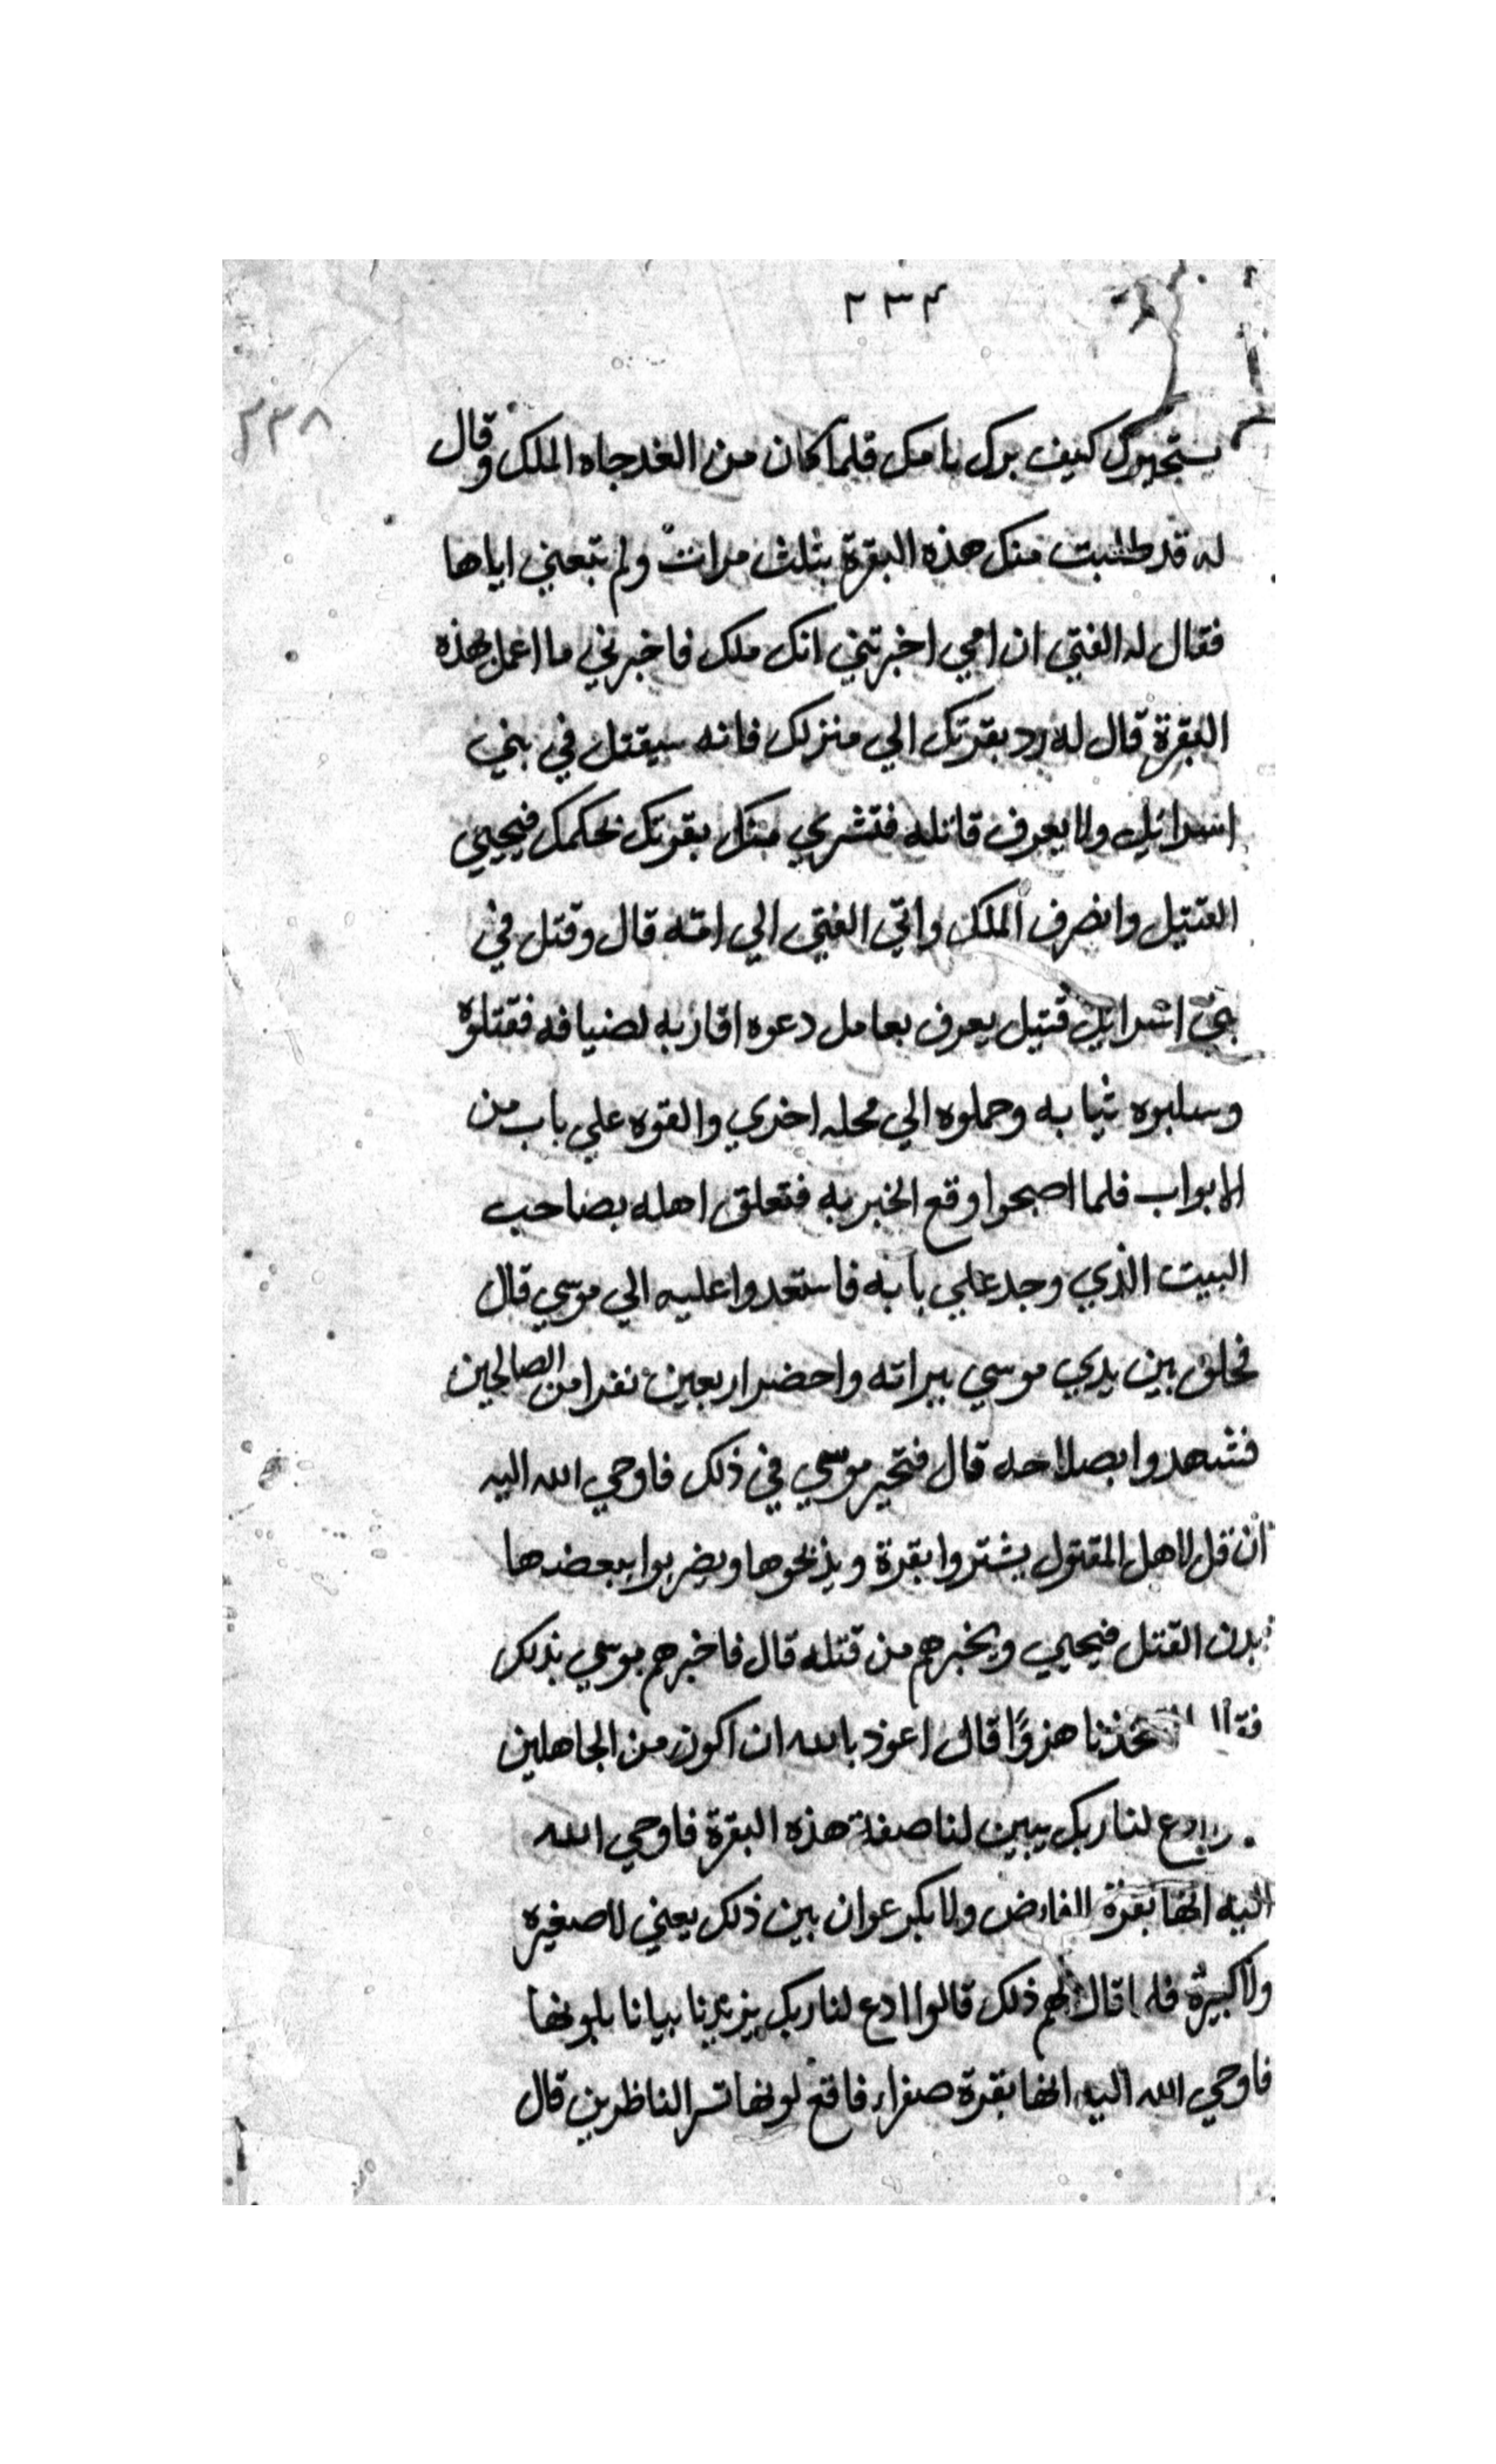 ٢٣٤
٢٣٨
كيف برك بامك فلما كان من الغد جاه الملك وقال
له قد طلبت منك هذه البقرة بثلث مرات ولم تبعني اياها
فقال له الفتي ان امي اخبرتني انك ملك فاخبرني ما اعمل بهذه
البقرة قال له رد بقرتك الي منزلك فانه سيقتل في بني
اسرائيل ولا يعرف قاتله فتشري منك بقرتك بحكمك فيحيي
القتيل وانصرف الملك واتي الفتي الي امه قال وقتل في
بني اسرايل قتيل يعرف بعامل دعوه اقاربه لضيافه فقتلوه
وسلبوه ثيابه وحملوه الي محله اخري والقوه علي باب من
الابواب فلما اصبحوا وقع الخبر به فتعلق اهله بصاحب
البيت الذي وجد علي بابه فاستعدوا عليه الي موسي قال
فحلف بين يدي موسي ببراته واحضر اربعين نفرا من الصالحين
فشهدوا بصلاحه قال فتحير موسي في ذلك فاوحي الله اليه
ان قل لاهل المقتول يشتروا بقرة ويذبحوها ويضربوا ببعضها
بدن القتل فيحيي ويخبرهم من قتله قال فاخبرهم موسي بذلك
هزوًا قال اعوذ بالله ان اكون من الجاهلين
ادع لنا ربك يبين لنا صفة هذه البقرة فاوحي الله
اليه انها بقرة الفارض ولا بكر عوان بين ذلك يعني لا صغيره
ولا كبيرة فلما قال لهم ذلك قالوا ادع لنا ربك يزيدنا بيانا بلونها
فاوحي الله اليه انها بقرة صفراء فاقع لونها تسر الناظرين قال